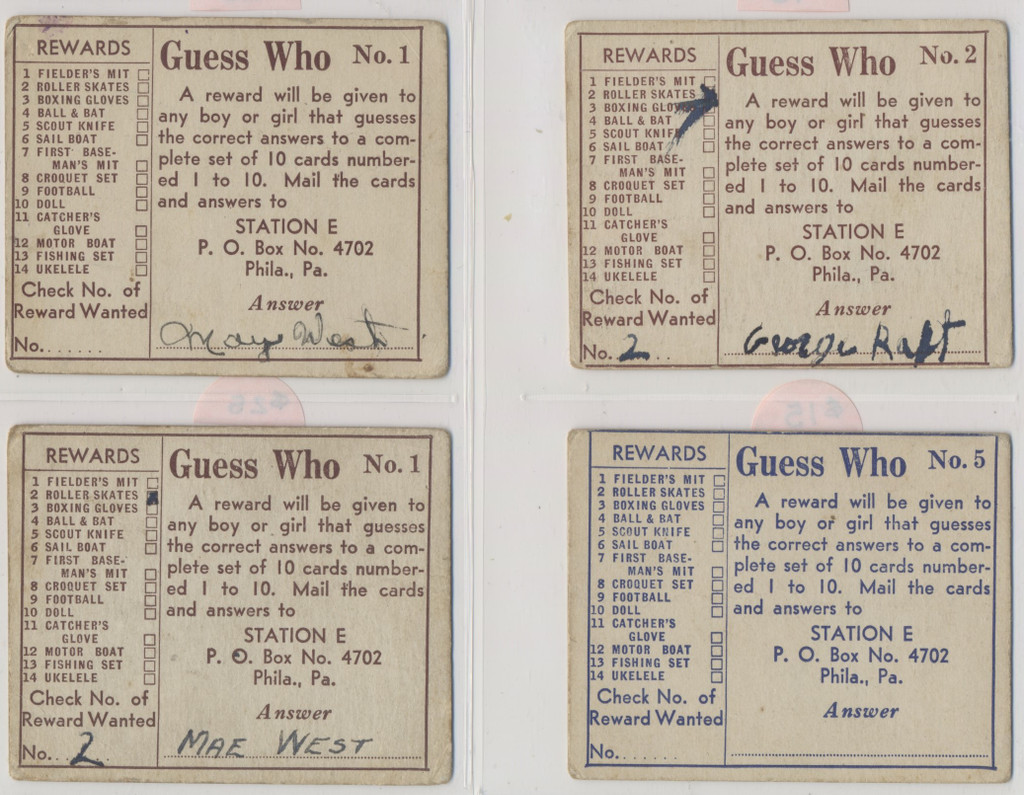 REWARDS
1 FIELDER'S MIT
2 ROLLER SKATES
3 BOXING GLOVES
4 BALL & BAT
5 SCOUT KNIFE
6 SAIL BOAT
7 FIRST BASE-
MAN'S MIT
8 CROQUET SET
9 FOOTBALL
10 DOLL
11 CATCHER'S
GLOVE
12 MOTOR BOAT
13 FISHING SET
14 UKELELE
Check No. of
Reward Wanted
No.......
Guess Who No. 1
A reward will be given to
any boy or girl that guesses
the correct answers to a com-
plete set of 10 cards number-
ed 1 to 10. Mail the cards
and answers to
STATION E
P. O. Box No. 4702
Phila., Pa.
Answer
Maye West
REWARDS
1 FIELDER'S MIT
2 ROLLER SKATES
3 BOXING GLOVES
4 BALL & BAT
5 SCOUT KNIFE
6 SAIL BOAT
7 FIRST BASE-
MAN'S MIT
8 CROQUET SET
9 FOOTBALL
10 DOLL
11 CATCHER'S
GLOVE
12 MOTOR BOAT
13 FISHING SET
14 UKELELE
Check No. of
Reward Wanted
No. 2
Guess Who No. 2
A reward will be given to
any boy or girl that guesses
the correct answers to a com-
plete set of 10 cards number-
ed 1 to 10. Mail the cards
and answers to
STATION E
P. O. Box No. 4702
Phila., Pa.
Answer
George Raft
REWARDS
1 FIELDER'S MIT
2 ROLLER SKATES
3 BOXING GLOVES
4 BALL & BAT
5 SCOUT KNIFE
6 SAIL BOAT
7 FIRST BASE-
MAN'S MIT
8 CROQUET SET
9 FOOTBALL
10 DOLL
11 CATCHER'S
GLOVE
12 MOTOR BOAT
13 FISHING SET
14 UKELELE
Check No. of
Reward Wanted
No. 2
Guess Who No. 1
A reward will be given to
any boy or girl that guesses
the correct answers to a com-
plete set of 10 cards number-
ed 1 to 10. Mail the cards
and answers to
STATION E
P. O. Box No. 4702
Phila., Pa.
Answer
MAE WEST
REWARDS
1 FIELDER'S MIT
2 ROLLER SKATES
3 BOXING GLOVES
4 BALL & BAT
5 SCOUT KNIFE
6 SAIL BOAT
7 FIRST BASE-
MAN'S MIT
8 CROQUET SET
9 FOOTBALL
10 DOLL
11 CATCHER'S
GLOVE
12 MOTOR BOAT
13 FISHING SET
14 UKELELE
Check No. of
Reward Wanted
No.......
Guess Who No. 5
A reward will be given to
any boy or girl that guesses
the correct answers to a com-
plete set of 10 cards number-
ed 1 to 10. Mail the cards
and answers to
STATION E
P. O. Box No. 4702
Phila., Pa.
Answer